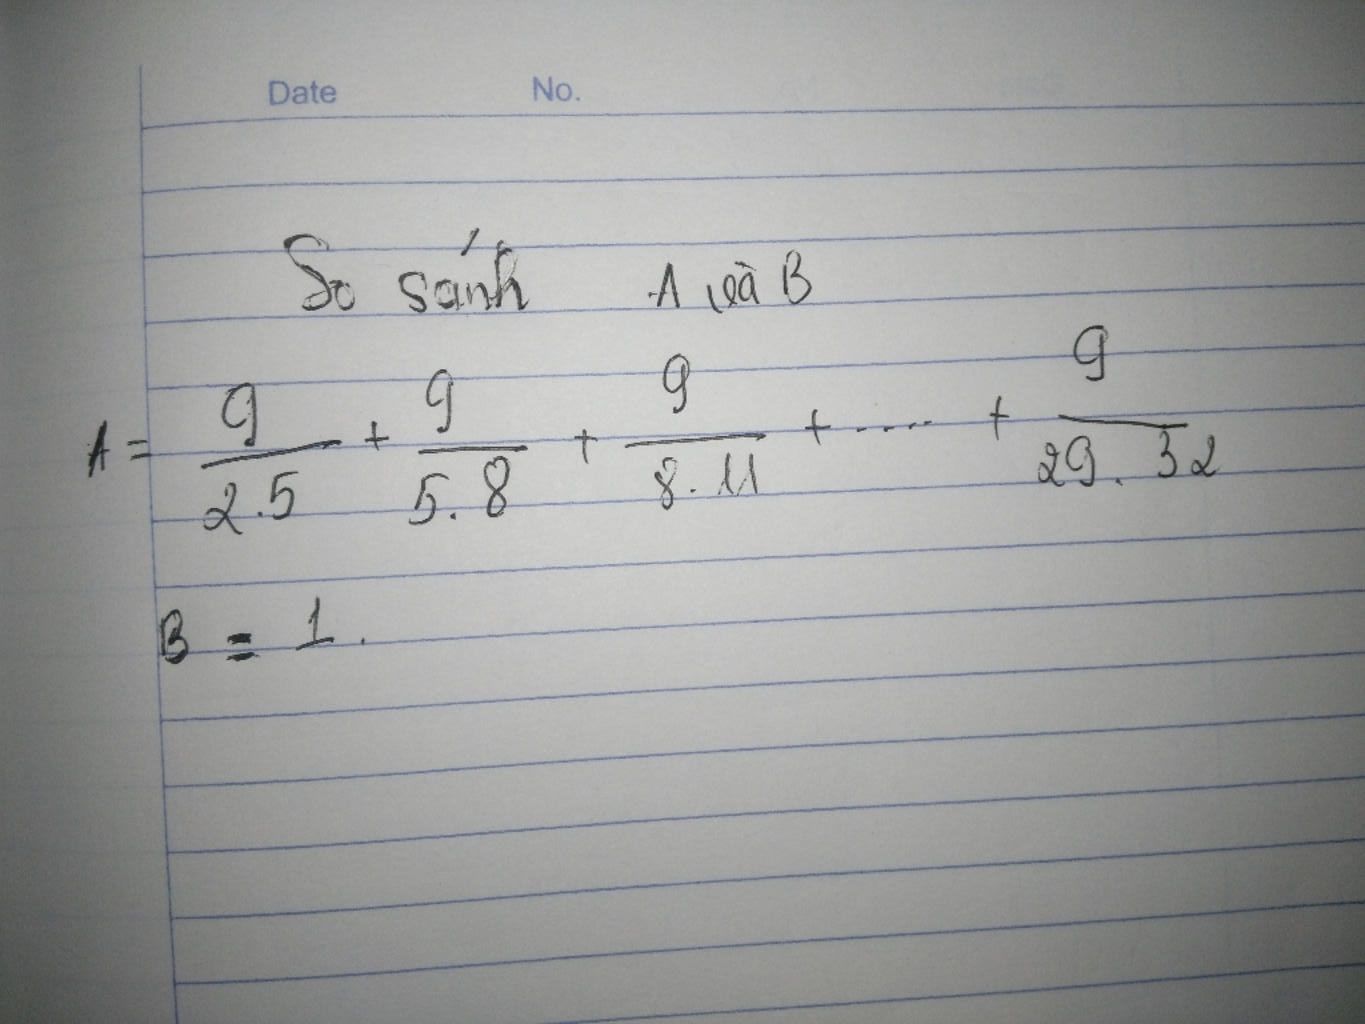 Date No.
So sánh A và B
A = 9/2.5 + 9/5.8 + 9/8.11 + .... + 9/29.32
B = 1.